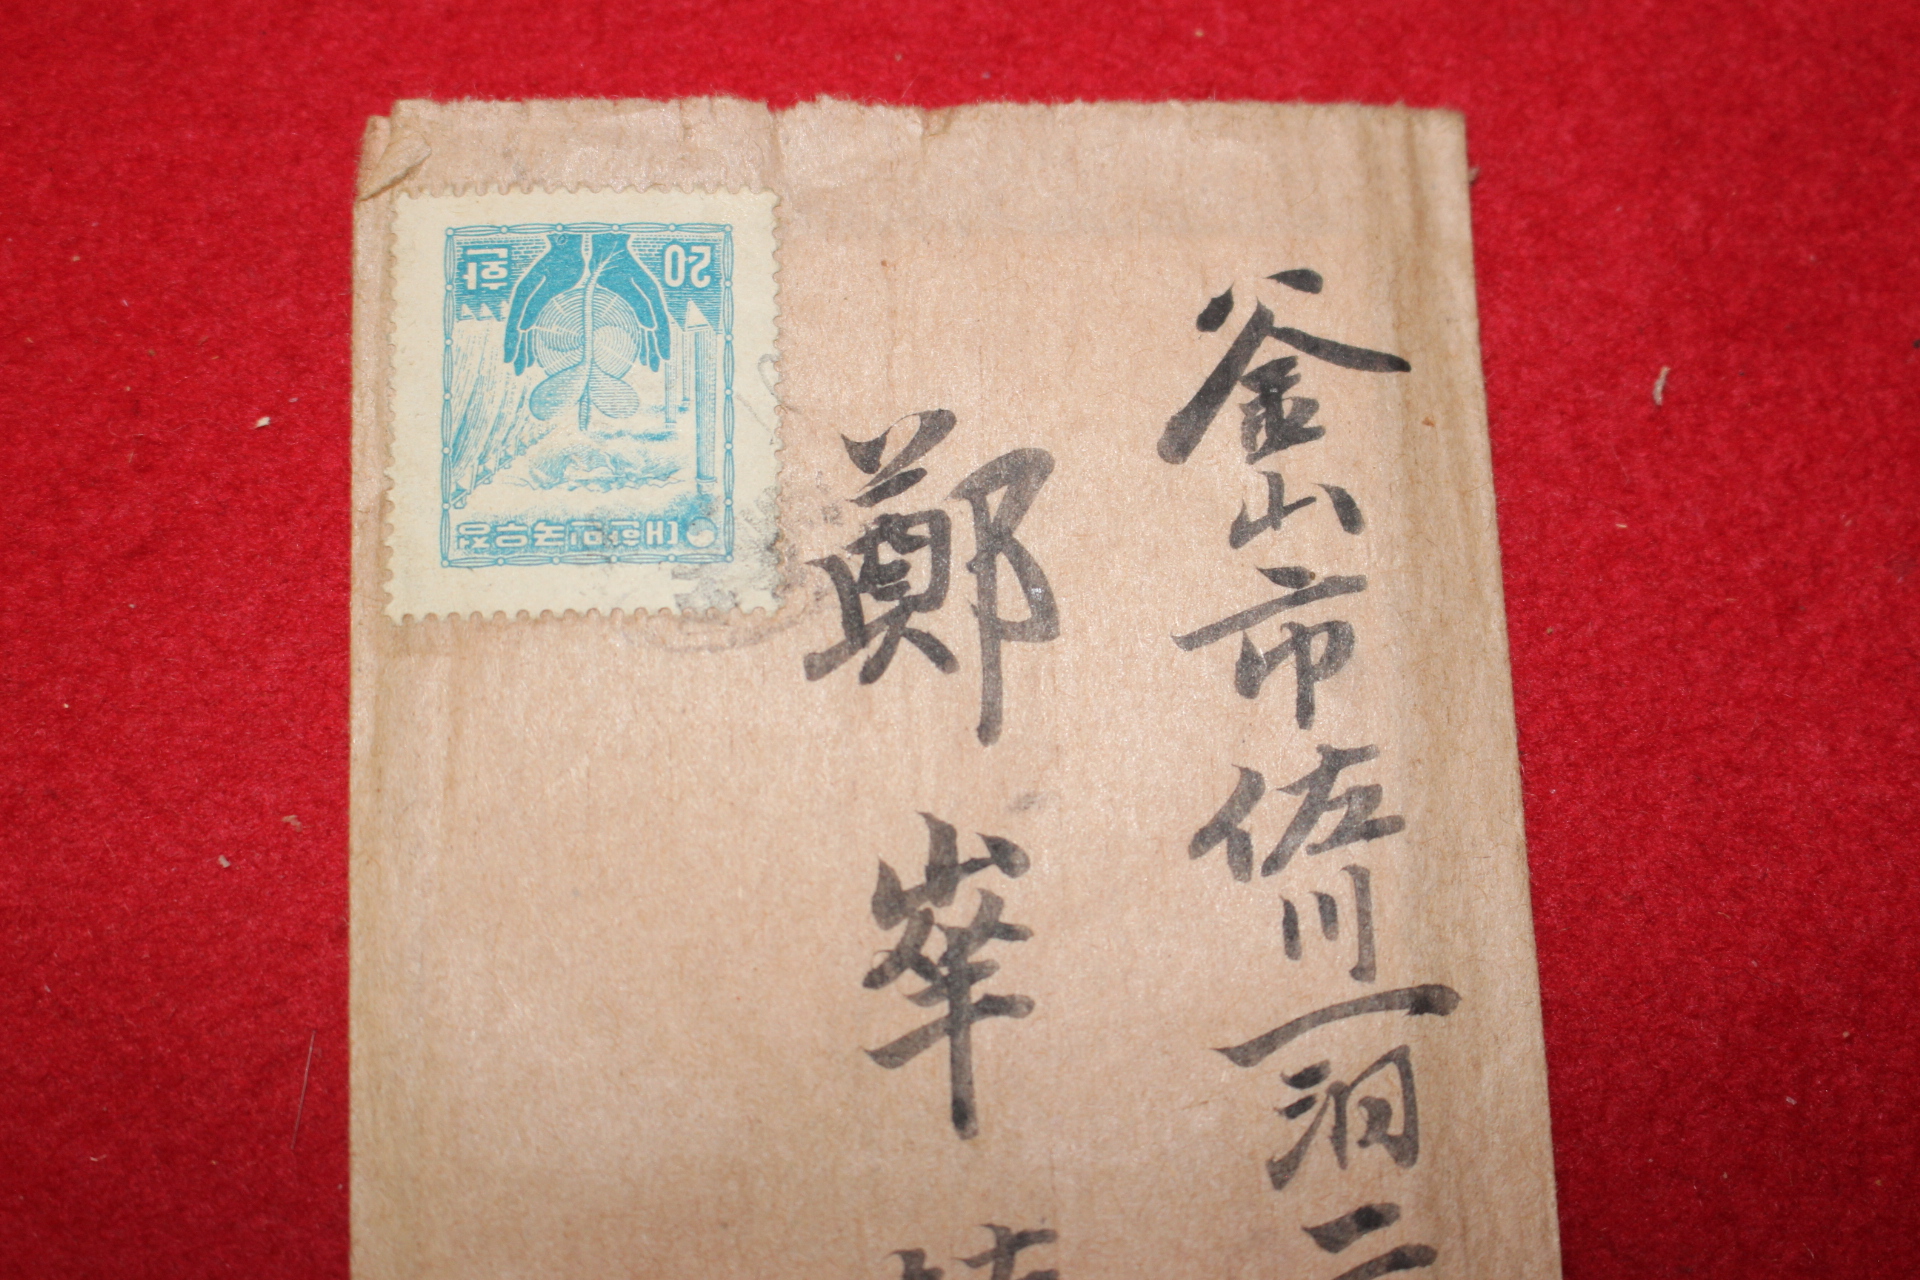 釜山市佐川一洞二
鄭峯
20
환
대한민국우표